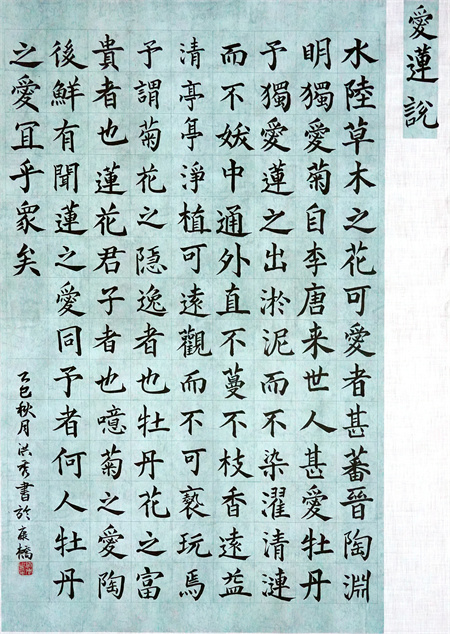 愛蓮說
水陸草木之花可愛者甚蕃晉陶淵
明獨愛菊自李唐来世人甚愛牡丹
予獨愛蓮之出淤泥而不染濯清漣
而不妖中通外直不蔓不枝香遠益
清亭亭淨植可遠觀而不可褻玩焉
予謂菊花之隱逸者也牡丹花之富
貴者也蓮花君子者也噫菊之愛陶
後鮮有聞蓮之愛同予者何人牡丹
之愛冝乎眾矣
乙巳秋月洪秀書於康橋